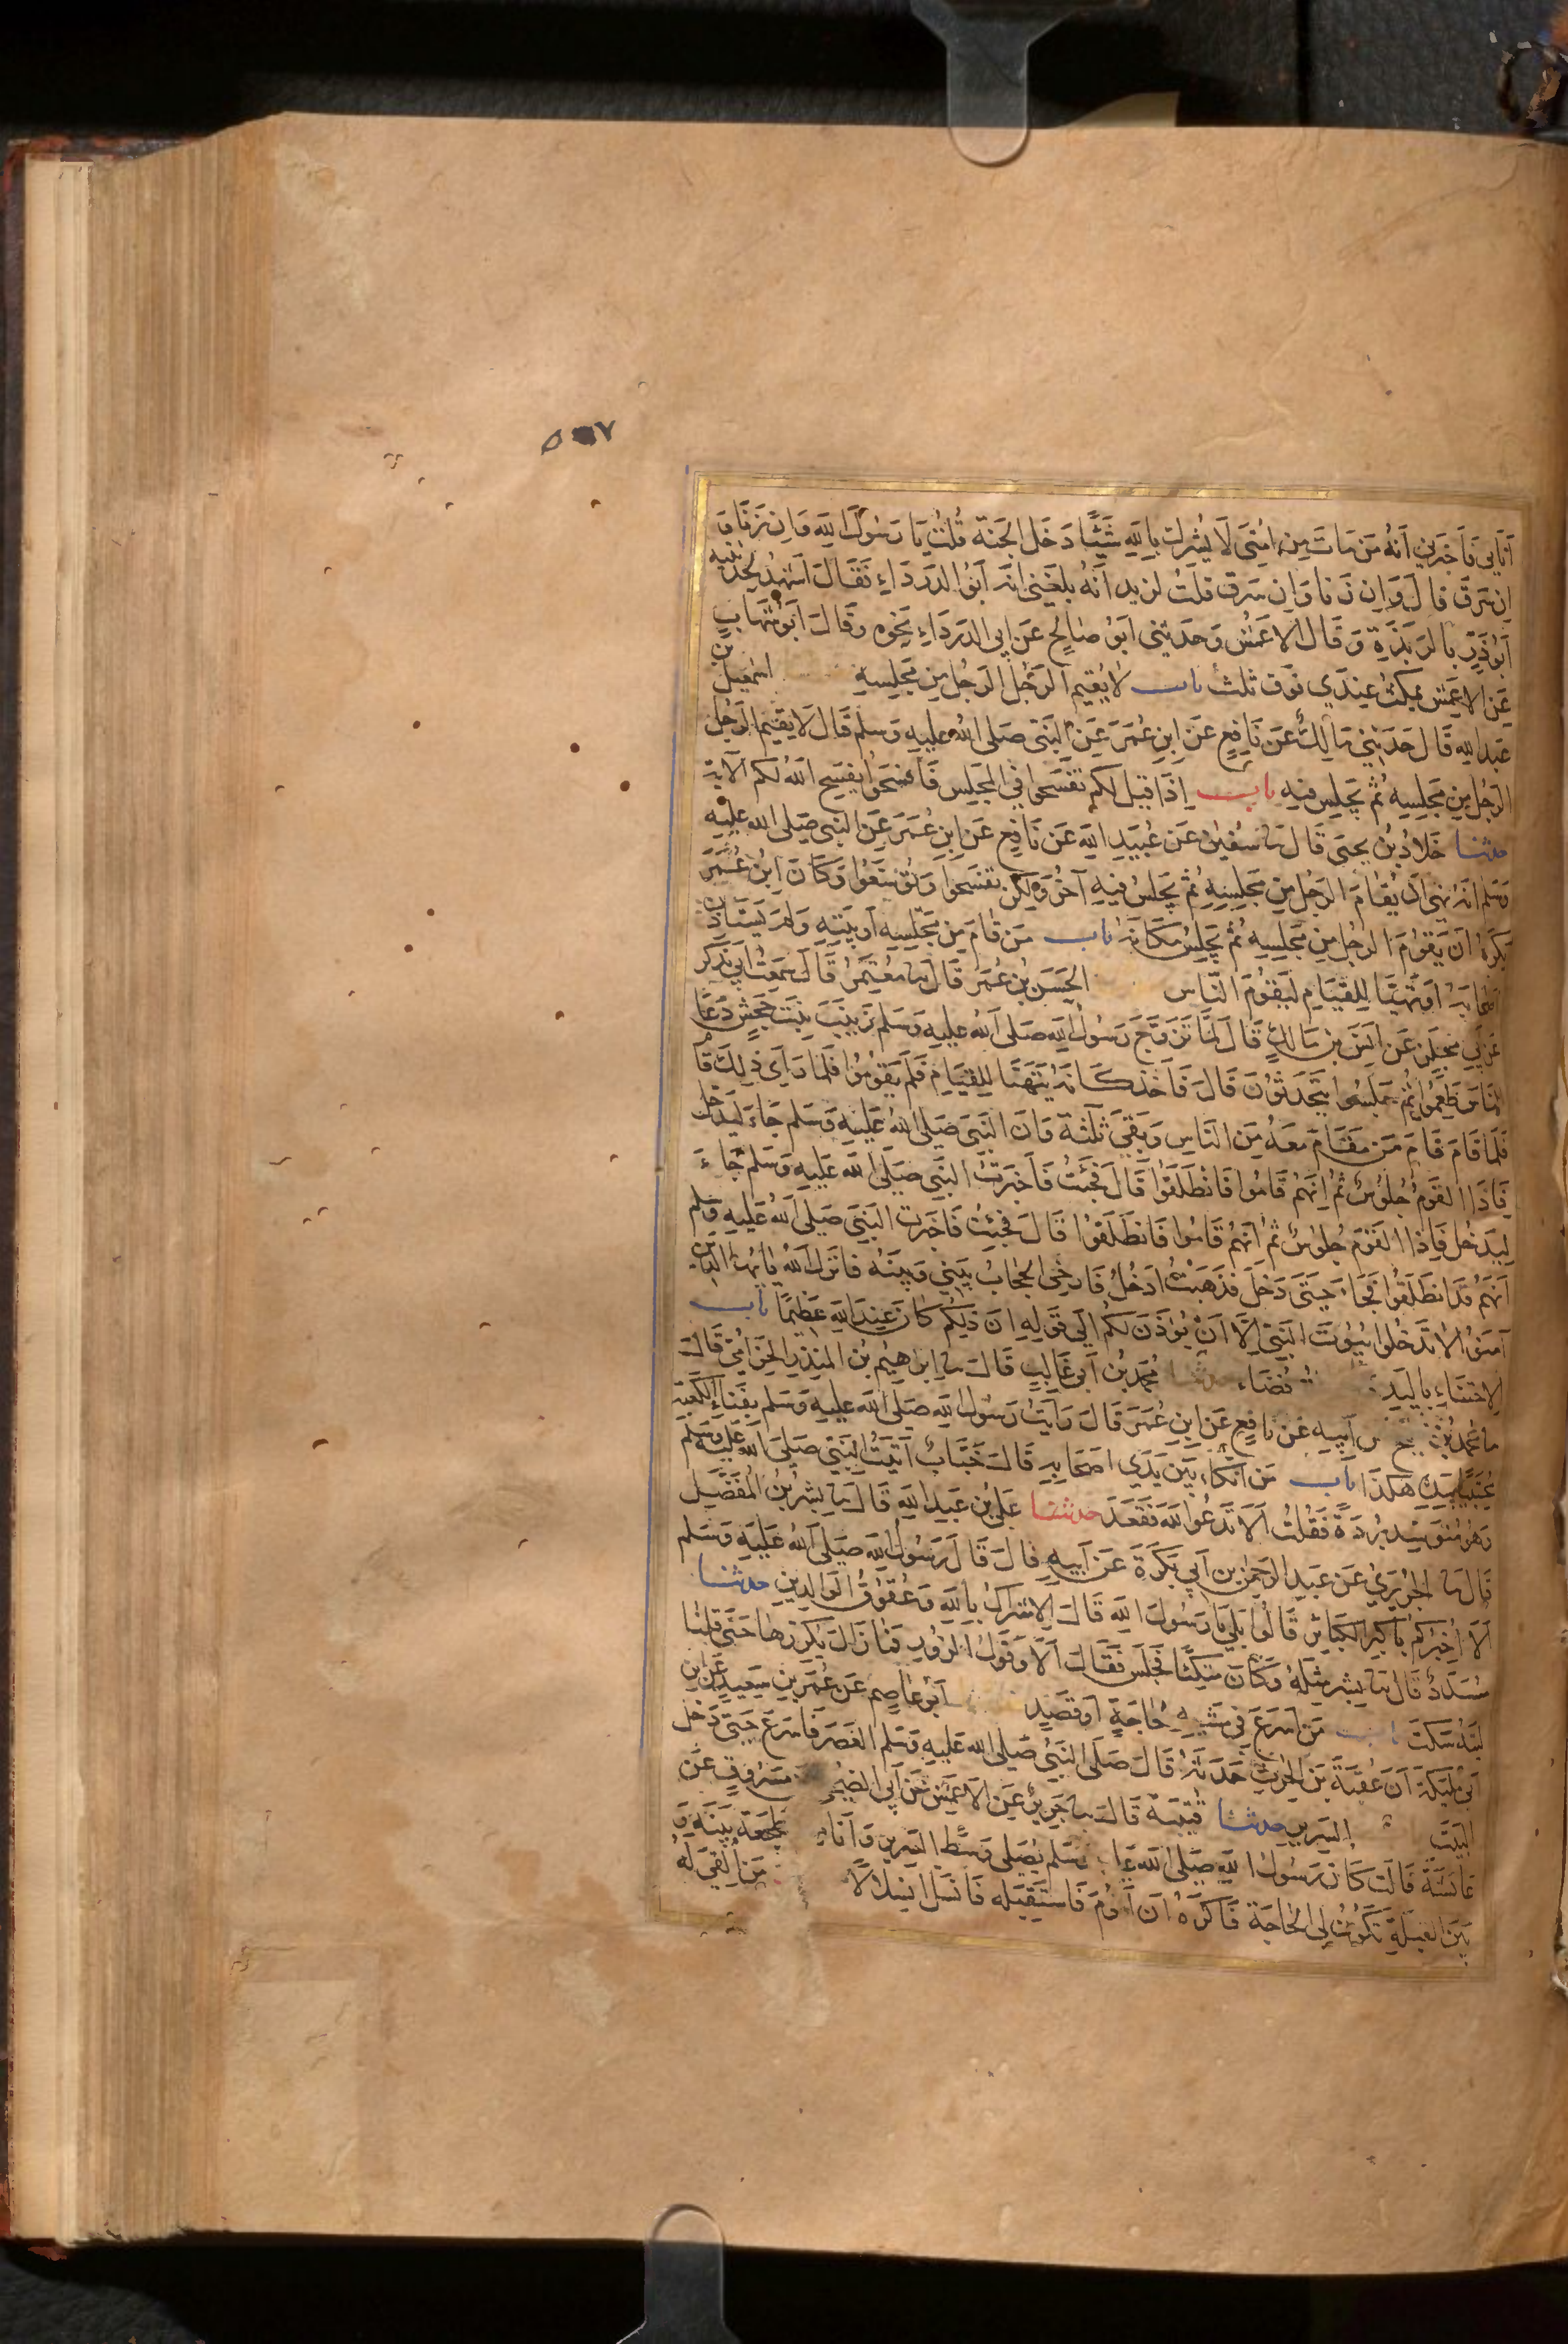 ٥٩٧
أتاني فأخبرني أنه من مات من أمتي لا يشرك بالله شيئًا دخل الجنة قلت يا رسول الله وإن زنا و
إن سرق قال وإن زنا وإن سرق قلت لزيد أنه بلغني أنه أبو الدرداء فقال أشهد لحدثنيه
أبو ذر بالربذة وقال الأعمش وحدثني أبو صالح عن أبي الدرداء نحوه وقال أبو شهاب
عن الأعمش يمكث عندي فوق ثلث باب لا يقيم الرجل الرجل من مجلسه اسمعيل بن
عبد الله قال حدثني مالك عن نافع عن ابن عمر عن النبي صلى الله عليه وسلم قال لا يقيم الرجل
الرجل من مجلسه ثم يجلس فيه باب إذا قيل لكم تفسحوا في المجلس فأفسحوا يفسح الله لكم الآية
حدثنا خلاد بن يحيى قال ثنا سفين عن عبيد الله عن نافع عن ابن عمر عن النبي صلى الله عليه
وسلم أنه نهى أن يقام الرجل من مجلسه ثم يجلس فيه آخر ولكن تفسحوا وتوسعوا وكان ابن عمر
يكره أن يقوم الرجل من مجلسه ثم يجلس مكانه باب من قام من مجلسه أو بيته ولم يستأذن
أصحابه أو تهيأ للقيام ليقوم الناس الحسن بن عمر قال ثنا معتمر قال سمعت أبي يذكر
عن أبي مجلز عن أنس بن مالك قال لما تزوج رسول الله صلى الله عليه وسلم زينب بنت جحش دعا
الناس طعموا ثم جلسوا يتحدثون قال فأخذ كأنه يتهيأ للقيام فلم يقوموا فلما رأى ذلك قام
فلما قام قام من مقام معه من الناس وبقي ثلثة وأن النبي صلى الله عليه وسلم جاء ليدخل
فإذا القوم جلوس ثم إنهم قاموا فانطلقوا قال فجئت فأخبرت النبي صلى الله عليه وسلم جاء
ليدخل فإذا القوم جلوس ثم أنهم قاموا فانطلقوا قال فجئت فأخبرت النبي صلى الله عليه وسلم
أنهم قد انطلقوا فجاء حتى دخل فذهبت أدخل فأرخى الحجاب بيني وبينه فأنزل الله يأيها الذين
آمنوا لا تدخلوا بيوت النبي إلا أن يؤذن لكم إلى قوله إن ذلكم كان عند الله عظيمًا باب
الاحتباء باليد فضاء حدثنا محمد بن أبي غالب قال ثنا ابرهيم بن المنذر الحزامي قال
ثنا محمد بن أبيه عن نافع عن ابن عمر قال رأيت رسول الله صلى الله عليه وسلم بفناء الكعبة
محتبيًا بيده هكذا باب من اتكاء بين يدي أصحابه قال خباب أتيت النبي صلى الله عليه وسلم
وهو متوسد بردة فقلت ألا تدعوا الله فقعد حدثنا علي بن عبد الله قال ثنا بشر بن المفضل
قال ثنا الجريري عن عبد الرحمن بن أبي بكرة عن أبيه قال قال رسول الله صلى الله عليه وسلم
ألا أخبركم بأكبر الكبائر قالوا بلى يا رسول الله قال الإشراك بالله وعقوق الوالدين حدثنا
مسدد قال ثنا بشر مثله وكان متكئًا فجلس فقال ألا وقول الزور فما زال يكررها حتى قلنا
ليته سكت باب من أسرع في مشيه حاجة أو قصد أبو عاصم عن عمر بن سعيد عن ابن
أبي مليكة أن عقبة بن الحرث حدثه قال صلى النبي صلى الله عليه وسلم العصر فأسرع حتى دخل
البيت السرير حدثنا قتيبة قال ثنا جرير عن الأعمش عن أبي الضحى مسروق عن
عائشة قالت كان رسول الله صلى الله وسلم يصلي وسط السرير وأنا مضطجعة بينه و
بين القبلة تكون لي الحاجة فأكره أن أقوم فأستقبله فأنسل انسلالًا من ألقي له